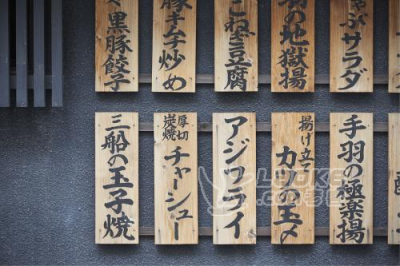 ゃぶサラダ
の地獄揚
豆腐
豚キムチ炒め
黒豚餃子
手羽の極楽揚
揚げ立て
カツの玉〆
アジフライ
厚切
炭焼
チャーシュー
三船の玉子焼